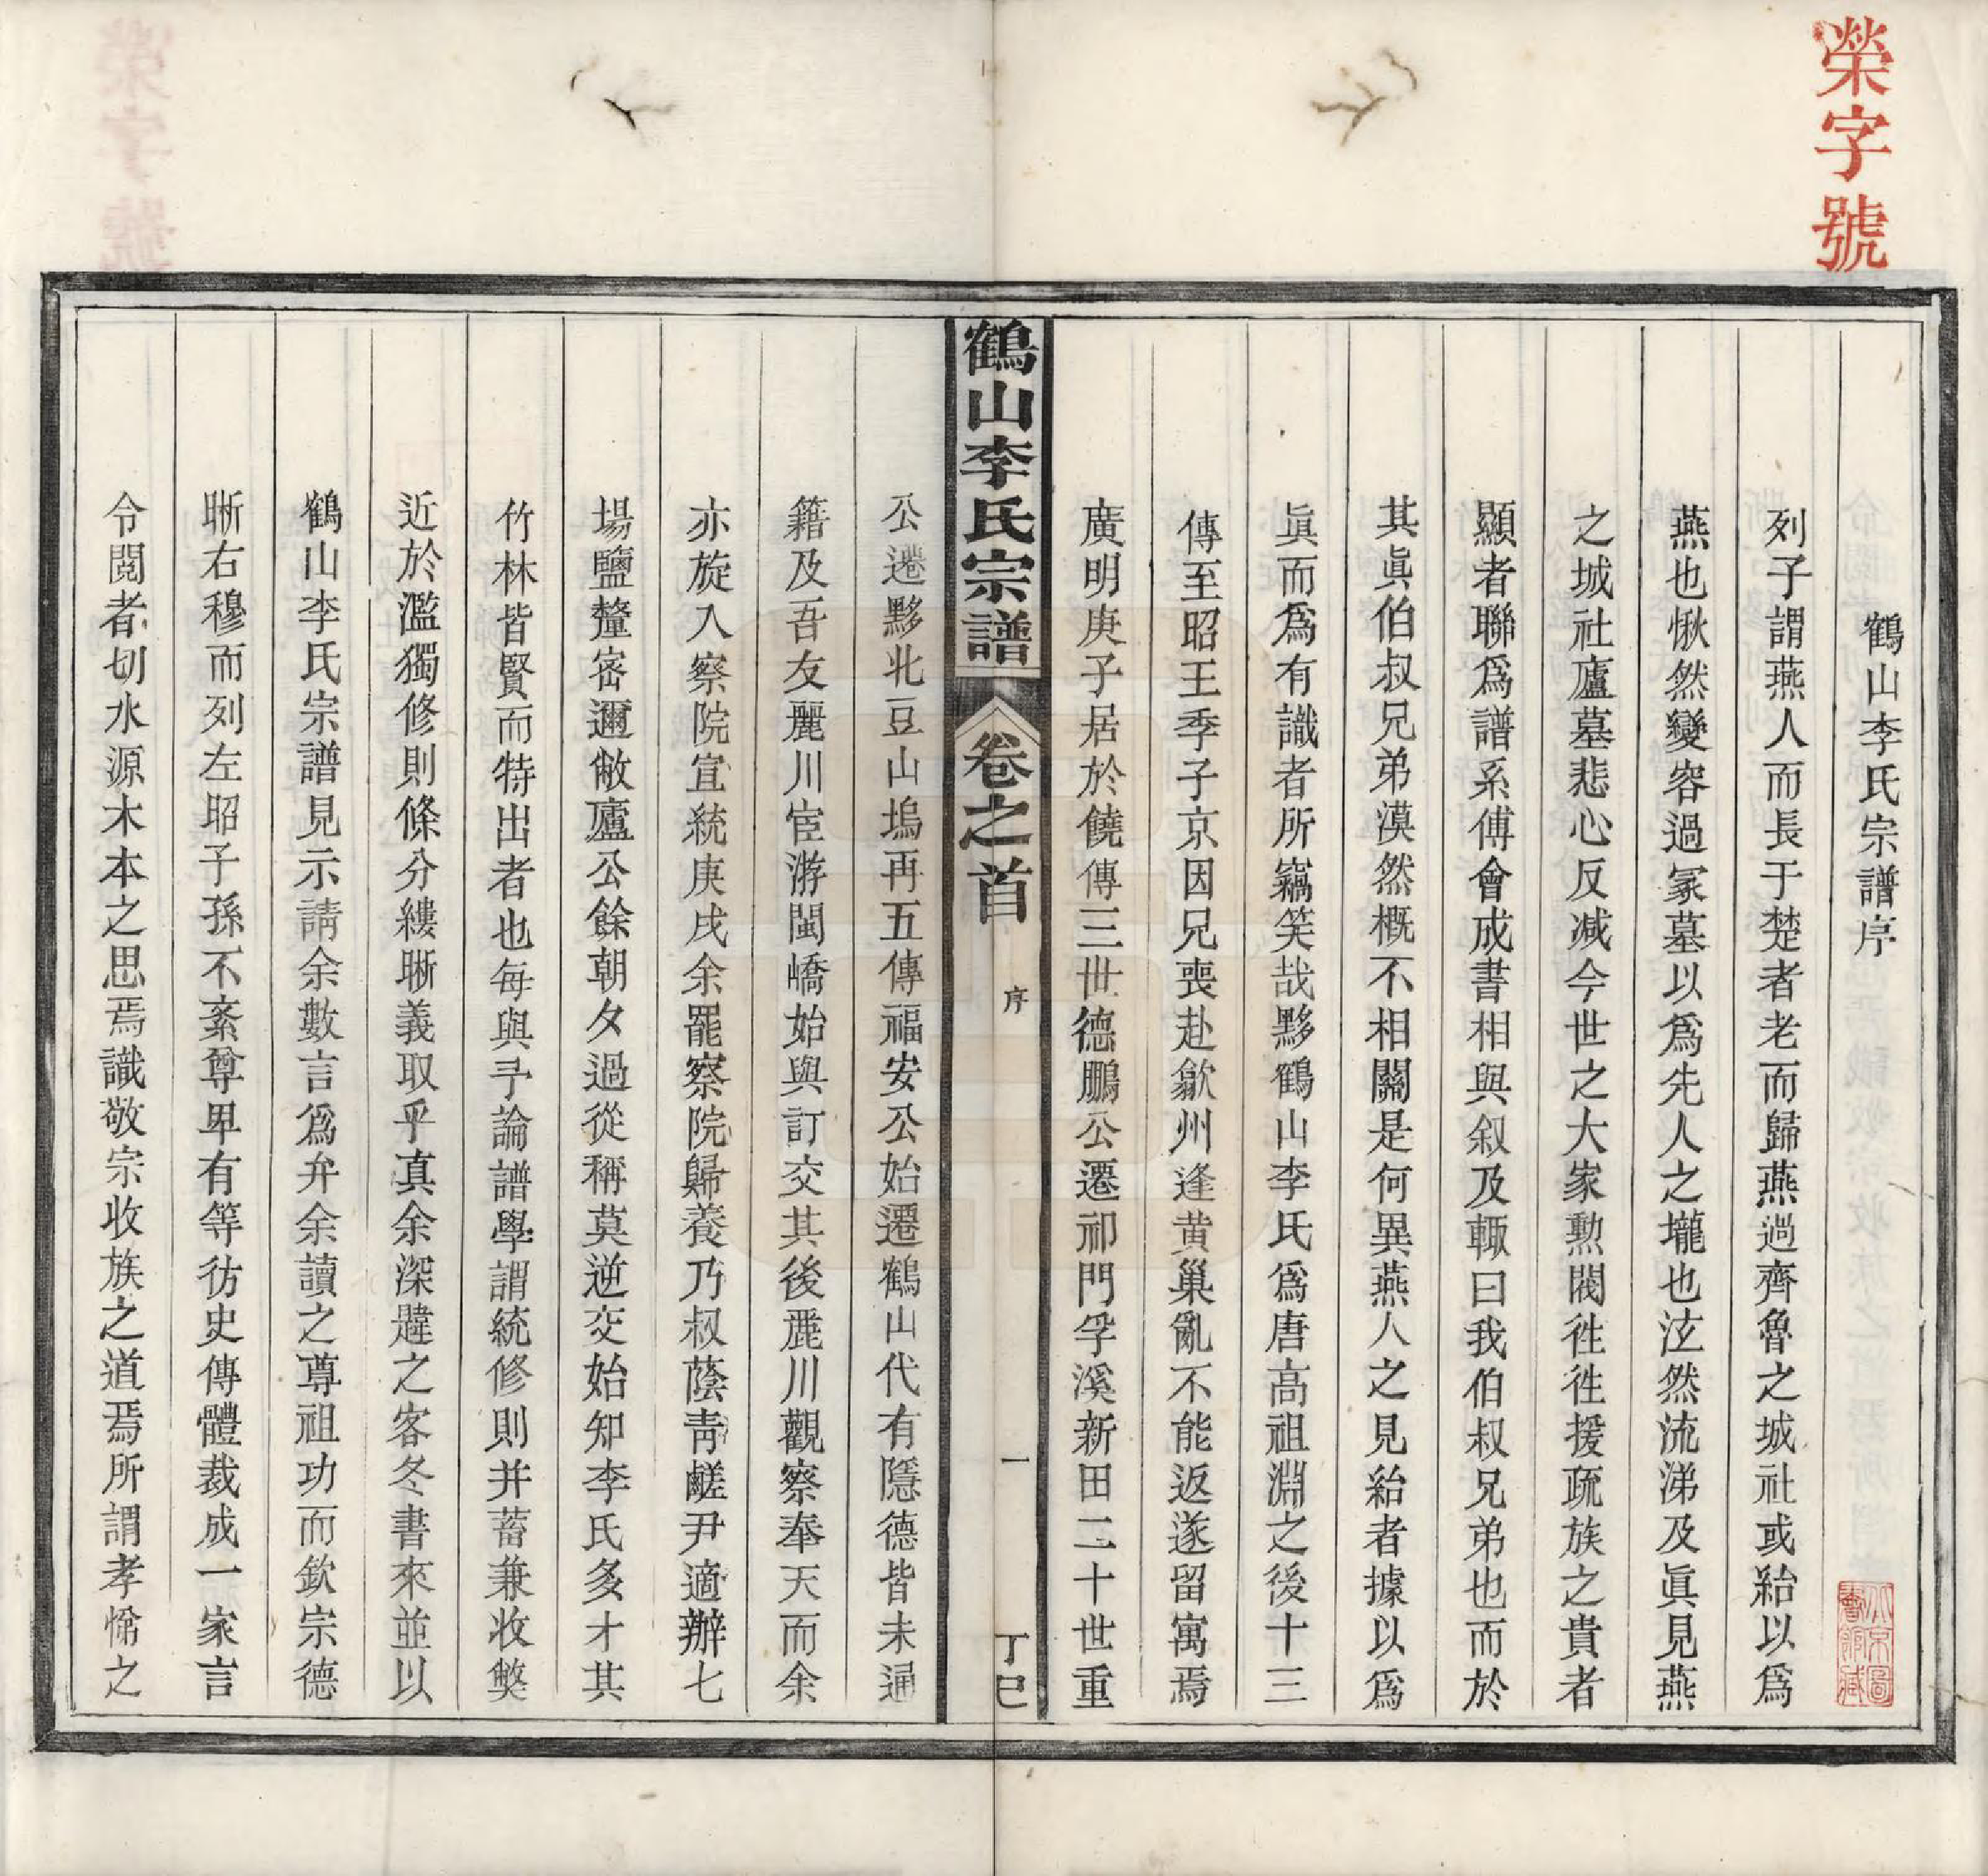 榮字號
鶴山李氏宗譜序
列子謂燕人而長于楚者老而歸燕過齊魯之城社或紿以爲
燕也愀然變容過冢墓以爲先人之壠也泫然流涕及眞見燕
之城社廬墓悲心反減今世之大家勲閥徃徃援疏族之貴者
顯者聯爲譜系傅會成書相與叙及輙曰我伯叔兄弟也而於
其眞伯叔兄弟漠然概不相關是何異燕人之見紿者據以爲
眞而爲有識者所竊笑哉黟鶴山李氏爲唐高祖淵之後十三
傳至昭王季子京因兄喪赴歙州逢黄巢亂不能返遂留寓焉
廣明庚子居於饒傳三世德鵬公遷祁門孚溪新田二十世重
鶴山李氏宗譜
卷之首
序
一
丁巳
公遷黟北豆山塢再五傳福安公始遷鶴山代有隱德皆未通
籍及吾友麗川宦游閩嶠始與訂交其後麗川觀察奉天而余
亦旋入察院宣統庚戌余罷察院歸養乃叔蔭靑鹺尹適辦七
場鹽釐密邇敝廬公餘朝夕過從稱莫逆交始知李氏多才其
竹林皆賢而特出者也每與予論譜學謂統修則并蓄兼收獘
近於濫獨修則條分縷晰義取乎真余深韙之客冬書來並以
鶴山李氏宗譜見示請余數言爲弁余讀之尊祖功而欽宗德
晰右穆而列左昭子孫不紊尊卑有等彷史傳體裁成一家言
令閱者切水源木本之思焉識敬宗收族之道焉所謂孝悌之